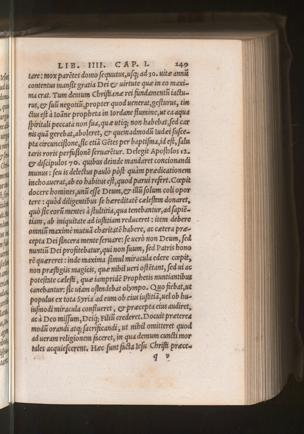 LIB. IIII. CAP. I. 249
tare: mox parētes domo sequutus, usq; ad 30. uitæ annū
contentus mansit gratia Dei & uirtute quæ in eo maxi
ma erat. Tum demum Christianæ rei fundamentū iactu-
rus, & sui negotiū, propter quod uenerat, gesturus, tin
ctus est à Ioāne propheta in Iordane flumine, ut ea aqua
spiritali peccata non sua, quæ utiq; non habebat, sed car
nis quā gerebat, aboleret, & quemadmodū iudæi susce-
pta circuncisione, sic etiā Gētes per baptisma, id est, salu
taris roris perfusionē seruarētur. Delegit Apostolos 12.
& discipulos 70. quibus deinde mandaret concionandi
munus: seu is delectus paulò pòst quàm prædicationem
inchoauerat, ab eo habitus est, quod parui refert. Cœpit
docere homines, unū esse Deum, & illū solum coli opor
tere: quòd diligentibus se hæreditatē cælestem donaret,
quò sic eorū mentes à stultitia, qua tenebantur, ad sapiē-
tiam, ab iniquitate ad iustitiam reduceret: item debere
omniū maximè mutuā charitatē habere, ac cætera præ-
cepta Dei sincera mente seruare: se uerò non Deum, sed
nuntiū Dei profitebatur, qui non suum, sed Patris hono
rē quæreret: inde maxima simul miracula edere cœpit,
non præstigiis magicis, quæ nihil ueri ostētant, sed ui ac
potestate cælesti, quæ iampridē Prophetis nuntiantibus
canebantur: sic uiam ostendebat olympo. Quo fiebat, ut
populus ex tota Syria ad eum ob eius iustitiā, uel ob hu
iusmodi miracula confluerēt, & præcepta eius audirēt,
ac à Deo missum, Deiq; Filiū crederet. Docuit præterea
modū orandi atq; sacrificandi, ut nihil omitteret quod
ad ueram religionem faceret, in qua demum cuncti mor
tales acquiescerent. Hæc sunt facta Iesu Christi præce-
q v